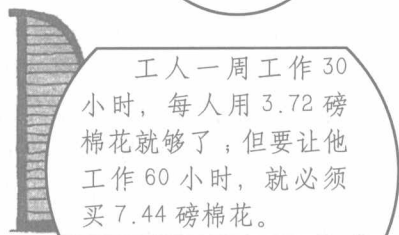 工人一周工作30
小时，每人用3.72磅
棉花就够了；但要让他
工作60小时，就必须
买7.44磅棉花。